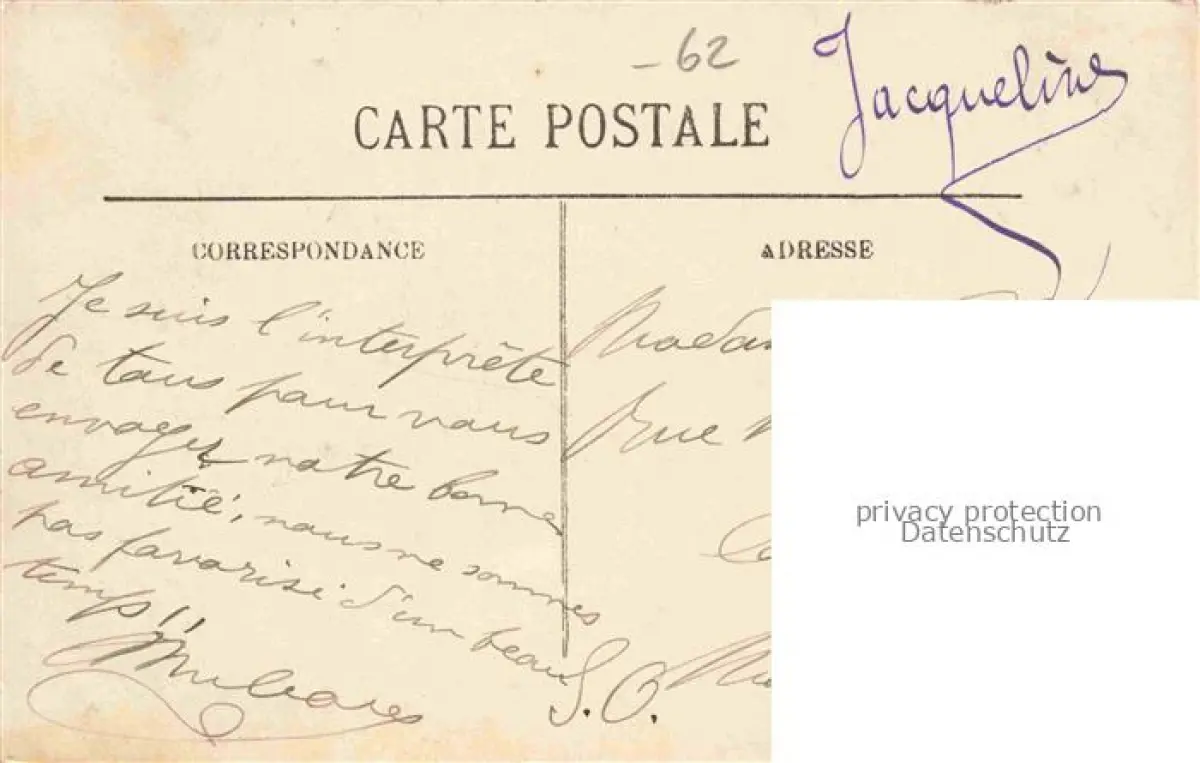 - 62
Jacqueline
CARTE POSTALE
CORRESPONDANCE
ADRESSE
Je suis l'interprète
de tous pour vous
envoyer notre bonne
amitié, nous ne sommes
pas favorisé d'un beau
temps!!
Madam
Rue
S. O.
privacy protection
Datenschutz